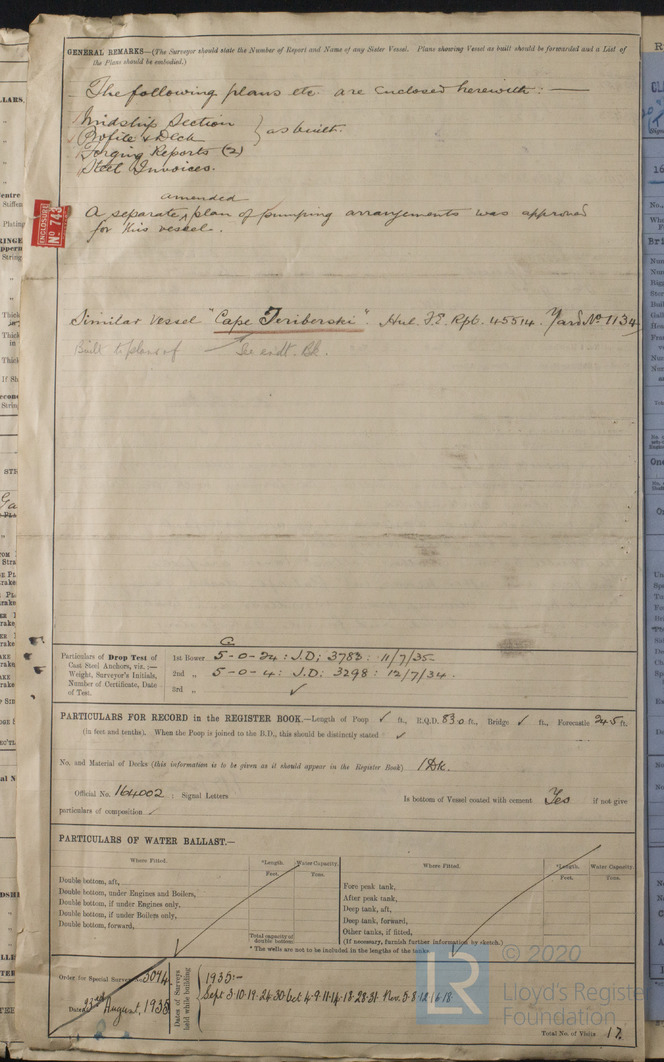 GENERAL REMARKS—(The Surveyor should state the Number of Report and Name of any Sister Vessel. Plans showing Vessel as built should be forwarded and a List of
the Plans should be embodied.)
The following plans etc are enclosed herewith: —
Midship Section
Profile & Deck } as built.
Forging Reports (2)
Steel Invoices.
amended
A separate plan of pumping arrangements was approved
for this vessel.
ENCLOSURE
No 743
Similar Vessel "Cape Teriberski". Hul. F.E. Rpt. 45514. Yard No 1134
Built to plans of
Particulars of Drop Test of
Cast Steel Anchors, viz.:—
Weight, Surveyor's Initials,
Number of Certificate, Date
of Test.
1st Bower 5-0-24: J.D: 3783: 11/7/35
2nd „ 5-0-4: J.D: 3298: 12/7/34.
3rd „ ✓
PARTICULARS FOR RECORD in the REGISTER BOOK.—Length of Poop ✓ ft., R.Q.D. 83.0 ft., Bridge ✓ ft., Forecastle 24.5 ft.
(in feet and tenths). When the Poop is joined to the B.D., this should be distinctly stated ✓
No. and Material of Decks (this information is to be given as it should appear in the Register Book) 1 Dk.
Official No. 164002 ; Signal Letters Is bottom of Vessel coated with cement Yes if not give
particulars of composition ✓
PARTICULARS OF WATER BALLAST.—
Where Fitted. *Length. Water Capacity. Where Fitted. *Length. Water Capacity
Feet. Tons. Feet. Tons.
Double bottom, aft,
Double bottom, under Engines and Boilers,
Double bottom, if under Engines only,
Double bottom, if under Boilers only,
Double bottom, forward,
Total capacity of double bottom
Fore peak tank,
After peak tank,
Deep tank, aft,
Deep tank, forward,
Other tanks, if fitted,
(If necessary, furnish further information by sketch.)
* The wells are not to be included in the lengths of the tanks.
Order for Special Survey No. 5094
Date 23rd August, 1935
Dates of Surveys
held while building
1935:-
Sept 3.10.19.24.30 Oct 4.9.11.14.18.28.31 Nov. 5.8.12.16.18
Total No. of Visits 17.
© 2020
LR
Lloyd's Register
Foundation